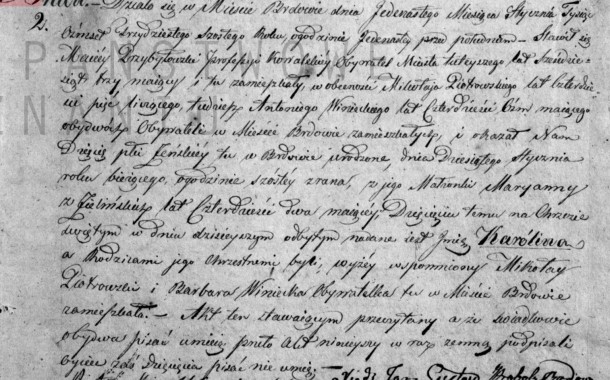 Działo się w Mieście Brdowie dnia Jedenastego Miesiąca Stycznia Tysiąc
2.
Ośmset Trzydziestego Szóstego Roku, o godzinie Jedenastey przed południem. – Stawił się
Maciey Przybyłowski Professyi Kowalskiey Obywatel Miasta tuteyszego lat
trzy maiący i tu zamieszkały, w obecności Mikołaja Piotrowskiego lat Czterdzie-
ści pięć liczącego, tudzież Antoniego Winieckiego lat Czterdzieści Ośm maiącego
obydwóch Obywateli w Mieście Brdowie zamieszkałych, i okazał Nam
Dziecię płci Żeńskiéy tu w Brdowie urodzone, dnia Dziesiątego Stycznia
roku bieżącego, o godzinie szóstéy zrana, z jego Małżonki Maryanny
z Zielińskich lat Czterdzieści dwa maiącéy; Dziecięciu temu na Chrzcie
świętym w dniu dzisieyszym odbytym nadane iest Imię Karolina
a Rodzicami jego Chrzestnemi byli, wyżéy wspomniony Mikołay
Piotrowski i Barbara Winiecka Obywatelka tu w Mieście Brdowie
zamieszkała. – Akt ten stawaiącym przeczytany a że świadkowie
obydwa pisać umieią przeto Akt ninieyszy wraz zemną podpisali
Oyciec zaś Dziecięcia pisać nie umié. –